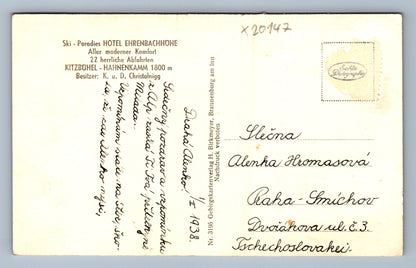 x 20147
Ski - Paradies HOTEL EHRENBACHHÖHE
Aller moderner Komfort
22 herrliche Abfahrten
KITZBÜHEL - HAHNENKAMM 1800 m
Besitzer: K. u. D. Christolnigg
1/I 1938
Drahá Alenko!
Srdečný pozdrav a vzpomínku
z Alp zasílá
Vzpomínám stále na
Nr. 3016 Gebirgskartenverlag H. Birkmeyer, Brannenburg am Inn
Nachdruck verboten
Slečna
Alenka Hromasová
Praha - Smíchov
Dvořákova ul. č. 3.
Tschechoslovakei.